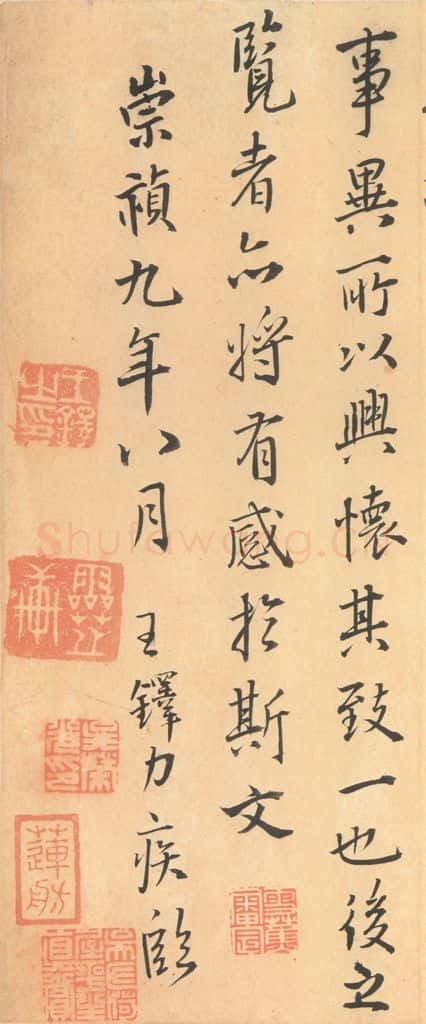 事異所以興懷其致一也後之
覽者亦將有感於斯文
崇禎九年八月 王鐸力疾臨
王鐸之印
蓮舫
Shufawang.c